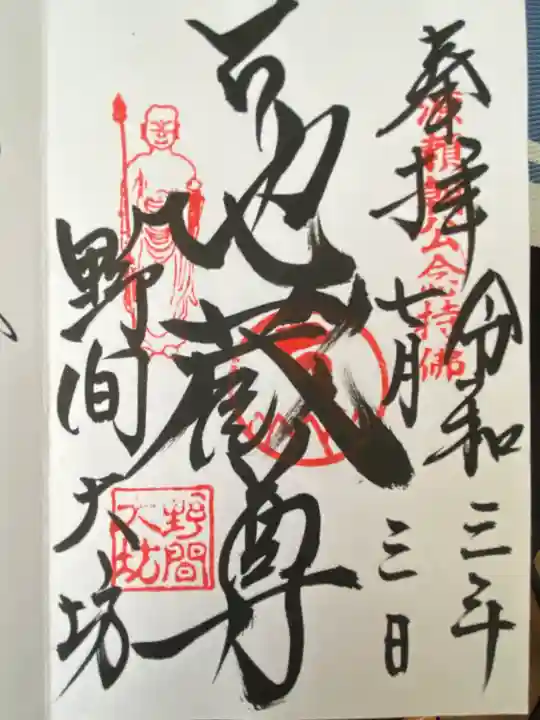 奉拝
源頼朝公念持佛
令和三年
七月三日
地蔵尊
野間大坊
野間大坊